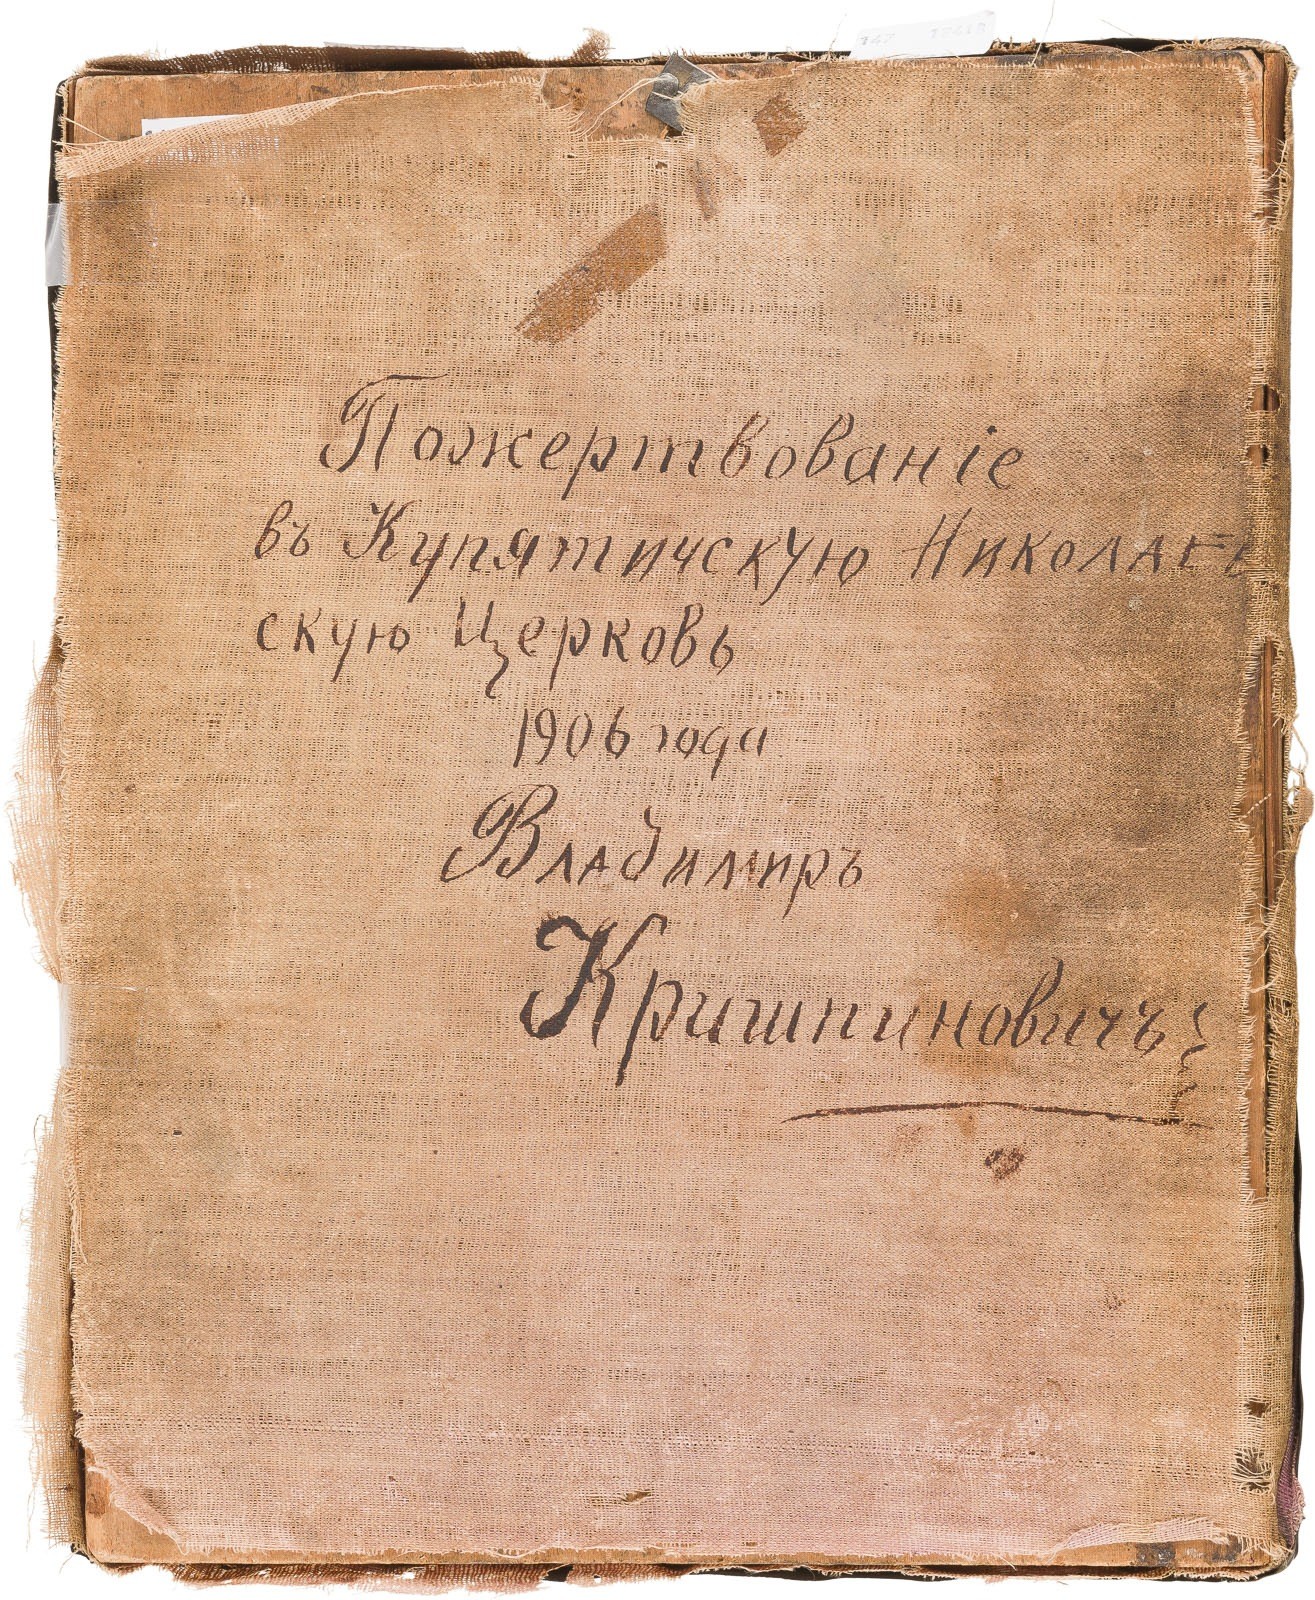 Пожертвованіе
въ Купятичскую Николаев
скую Церковь
1906 года
Владимиръ
Кришпиновичъ